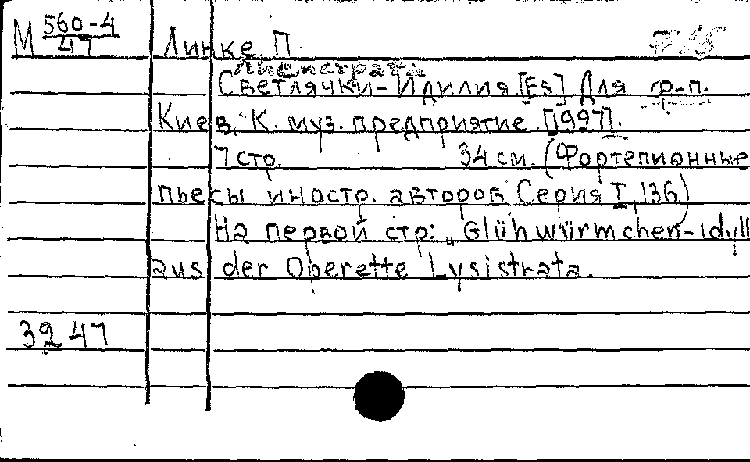 М 560-4/47 Линке П.
Лисистрата
Светлячки-Идилия [Es] Для ф-п.
Киев, К. муз. предприятие. [1927].
7 стр. 34 см. (Фортепионные
пьесы иностр. авторов Серия I, 136)
На первой стр: „Glühwürmchen-idyll
aus der Oberette Lysistrata.
32 47